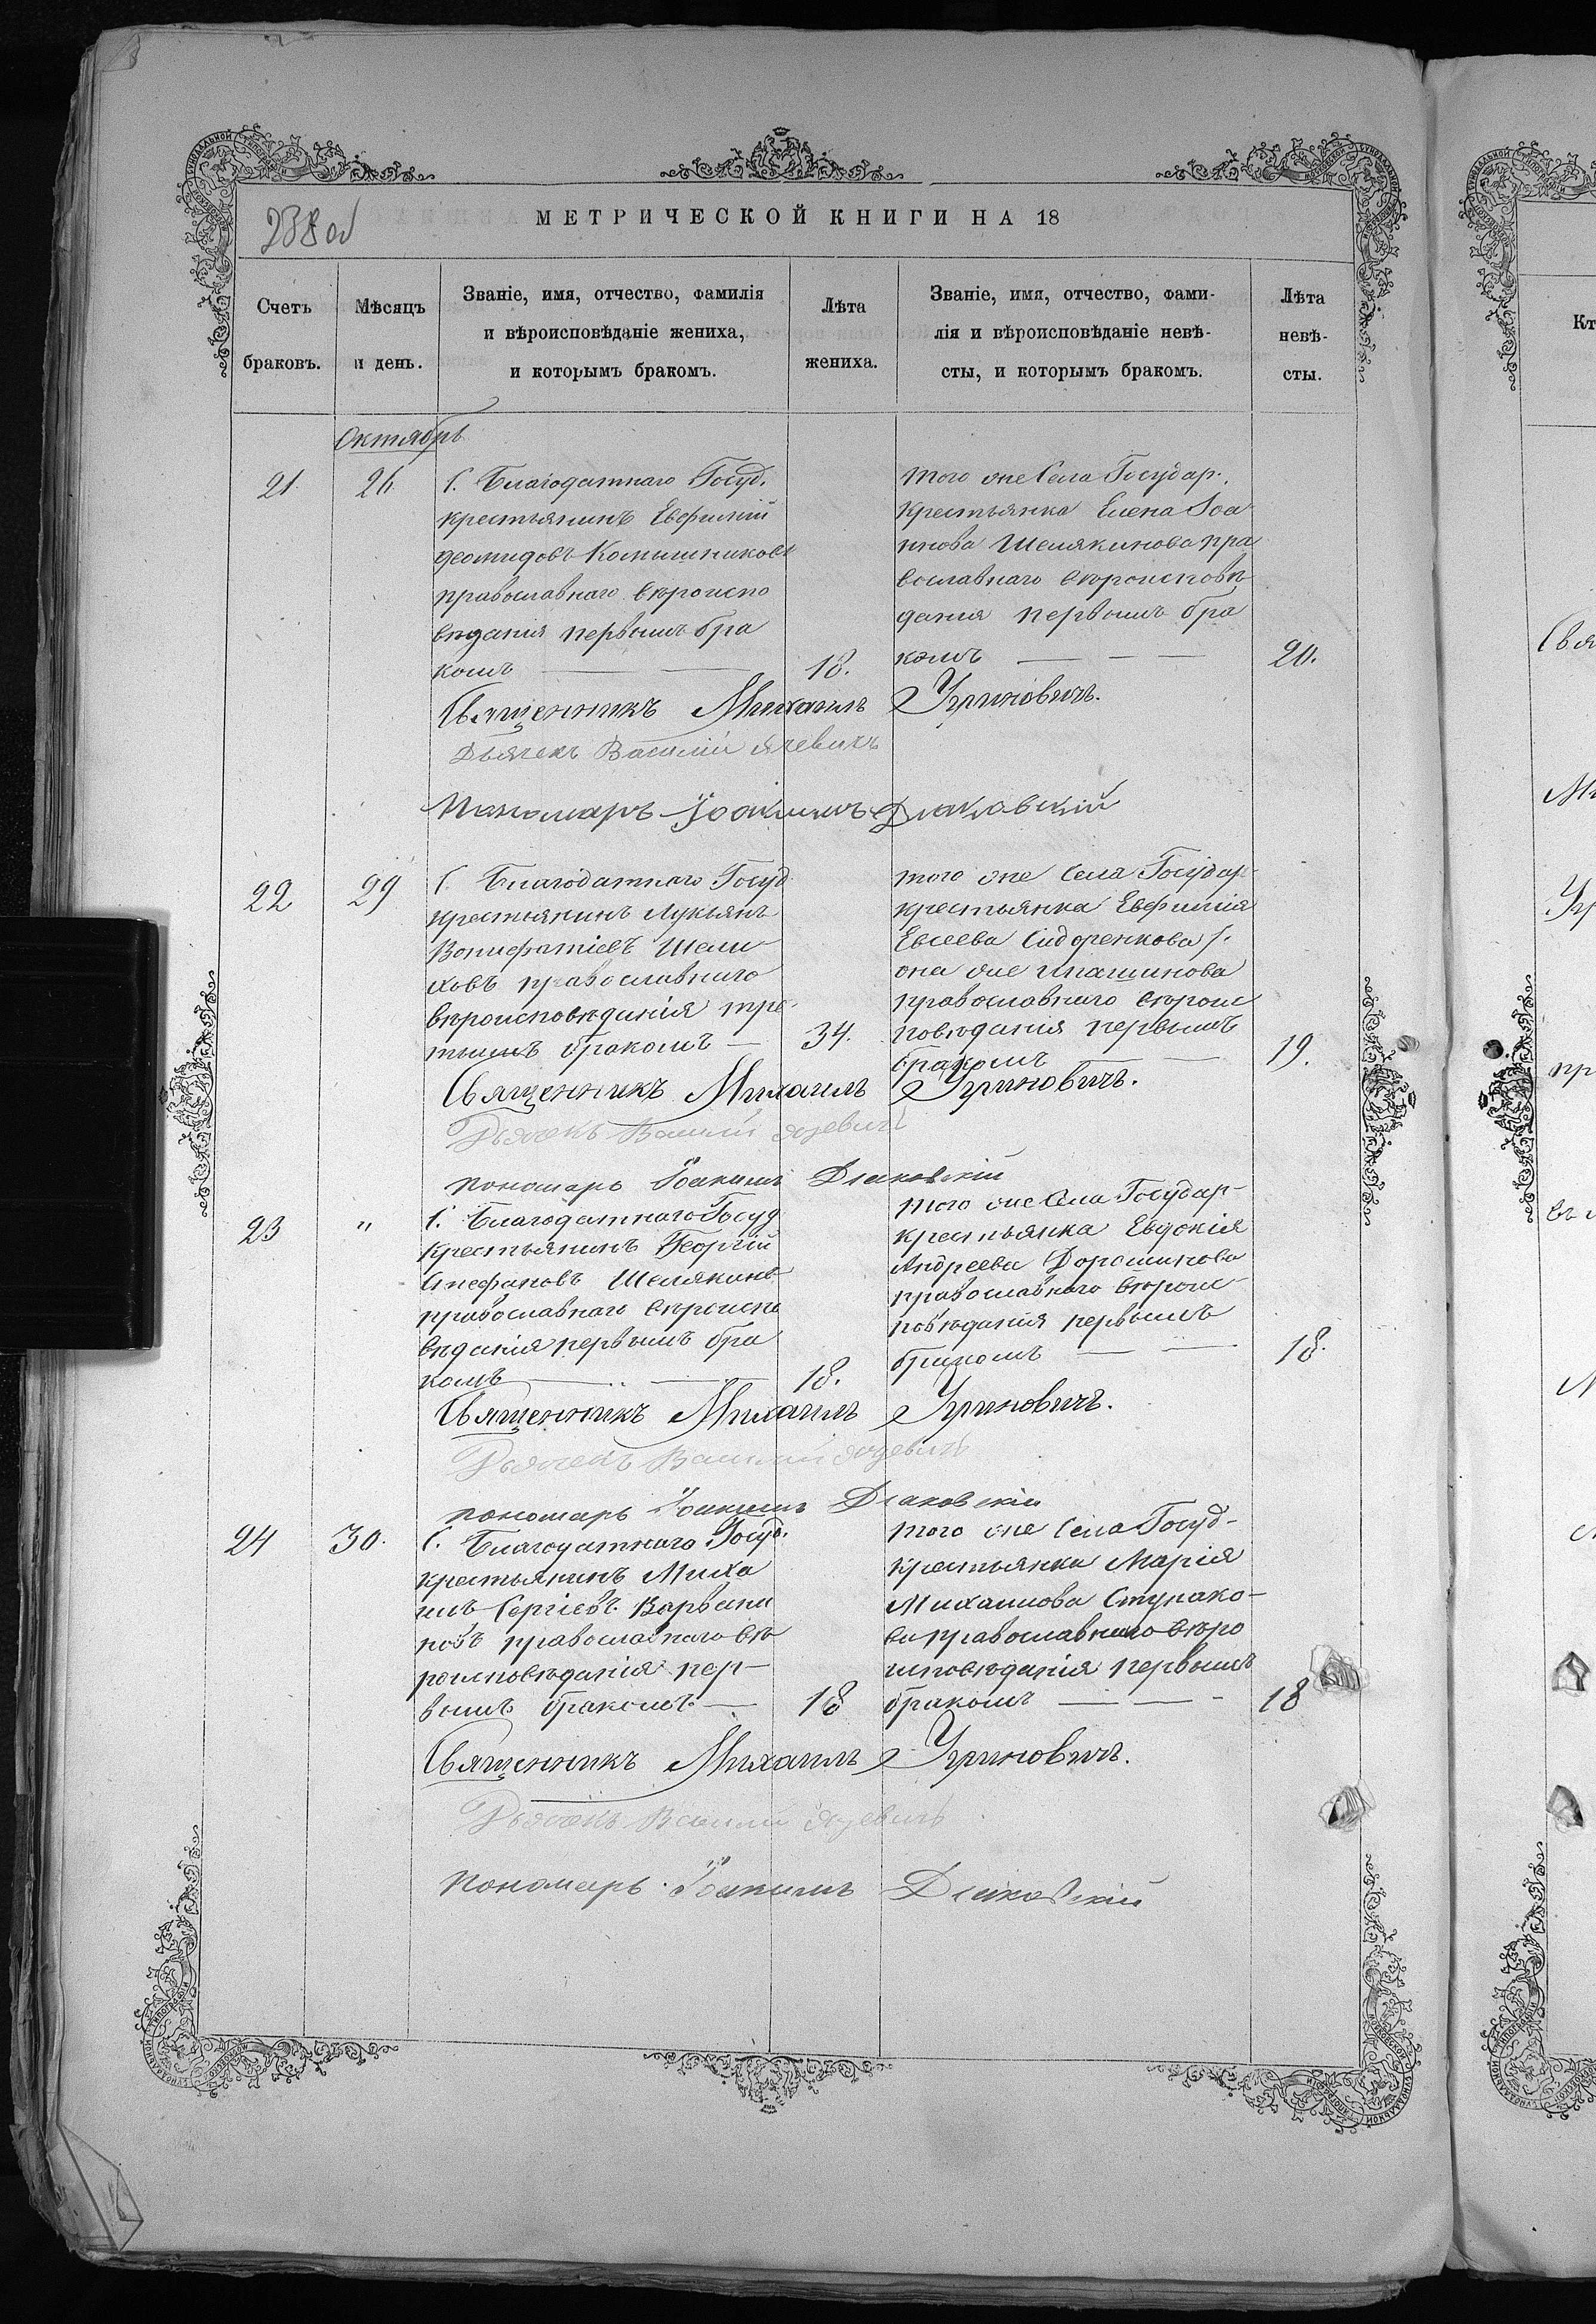 238 об
МЕТРИЧЕСКОЙ КНИГИ НА 18
Счетъ браковъ.
Мѣсяцъ и день.
Званіе, имя, отчество, фамилія
и вѣроисповѣданіе жениха,
и которымъ бракомъ.
Лѣта жениха.
Званіе, имя, отчество, фами-
лія и вѣроисповѣданіе невѣ-
сты, и которымъ бракомъ.
Лѣта невѣ-
сты.
Октябрь
21.
26
С. Благодатнаго Госуд.
крестьянинъ Евфимій
Деомидовъ
православнаго вѣроиспо
вѣданія первымъ бра
комъ
18.
того же Села Государ.
крестьянка Елена Іоа
ннова Шелякинова пра
вославнаго вѣроисповѣ
данія первымъ бра
комъ
20.
Священникъ Михаилъ Угриновичъ.
Дьячекъ Василій
Пономарь Іоакимъ Дlаковскій
22
29
С. Благодатнаго Госуд
крестьянинъ Лукьянъ
Вонифатіевъ Шели
ховъ православнаго
вѣроисповѣданія тре
тьимъ бракомъ
34.
того же Села Государ
крестьянка Евфимія
Евсеева Сидоренкова
она же
православнаго вѣроис
повѣданія первымъ
бракомъ
19.
Священникъ Михаилъ Угриновичъ.
Дьячекъ Василій
пономарь Іоакимъ Діаковскій
23
"
С. Благодатнаго Госуд
крестьянинъ Георгій
Стефановъ Шелякинъ
православнаго вѣроиспо
вѣданія первымъ бра
комъ
18.
того же Села Государ-
крестьянка Евдокія
Андреева Дорошинова
православнаго вѣроис-
повѣданія первымъ
бракомъ
18.
Священникъ Михаилъ Угриновичъ.
Дьячекъ Василій
пономарь Іоакимъ Діаковскій
24
30.
С. Благодатнаго Госуд.
крестьянинъ Миха
илъ Сергіевъ Варвани
новъ православнаго вѣ
роисповѣданія пер-
вымъ бракомъ
18
того же Села Госуд-
крестьянка Марія
Михаилова Ступако-
ва православнаго вѣро
исповѣданія первымъ
бракомъ
18
Священникъ Михаилъ Угриновичъ.
Дьячекъ Василій
пономарь Іоакимъ Діаковскій